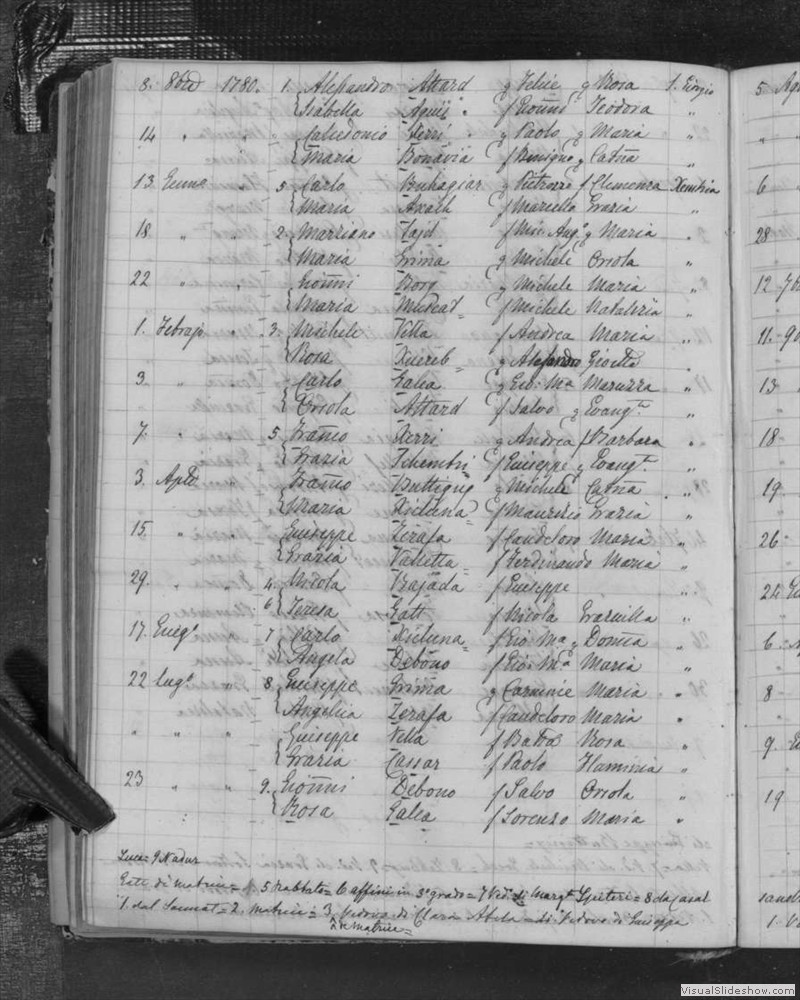 8. 8bre 1780. 1. Alessandro Attard q Felice q Rosa S. Giorgio 5 Ag
Isabella Aguis f Gio͞nni Teodora "
14 " " Calcedonio Ferri q Paolo q Maria "
Maria Bonavia f Benigno q Cat͞na "
13. Genno 5 Carlo Buhagiar q Pietro f Clemenza Xeuchia 6
Maria Axach f Marcello Grazia "
18 " " 2 Marziano Said f Mic: Ang.o q Maria " 28
Maria Grima q Michele Orsola "
22 " " Gio͞nni Borg q Michele Maria " 12 7b
Maria Muscat f Michele Natalizia "
1. Febrajo " 3. Michele Vella f Andrea Maria " 11. 9
Rosa Xuereb q Alessandro "
3 " " Carlo Galea q Gio: Ma Maruzza " 13
Orsola Attard f Salvo q Evang.ta "
7. " 5. Fran͞co Xerri q Andrea f Barbara " 18
Grazia Schembri f Guiseppe q Evang.ta "
3. Aple Fran͞co Buttigieg q Michele Cat͞na " 19
Maria Xicluna f Maurizio Grazia "
15. " " Guiseppe Zerafa f Candeloro Maria " 26
Grazia Valletta f Ferdinando Maria "
29. " " 4. Nicola Bajada f Guiseppe 24
6 Teresa Gatt f Nicola "
17. Guigo 7 Carlo Xicluna f Gio: Ma q Domca " 6
Angela Debono f Gio: Ma Maria "
22 Lugo " 8. Guiseppe Grima q Carmine Maria " 8
Angelica Zerafa f Candeloro Maria "
" " " Guiseppe Vella f Batta Rosa " 9
Grazia Cassar f Paolo Flaminia "
23 " " 9. Gio͞nni Debono f Salvo Orsola " 19
Rosa Galea f Lorenzo Maria "
9 Nadur
di matrice = 5 Rabbato = 6 affini in 3o grado = 7 Ved.o di Marg.ta Spiteri = 8 da Casal
1. dal Sannat = 2. matrice = 3 Vedovo di Clara Abela = di Vedovo di Guiseppa
2 di matrice =
1. V
VisualSlideshow.com